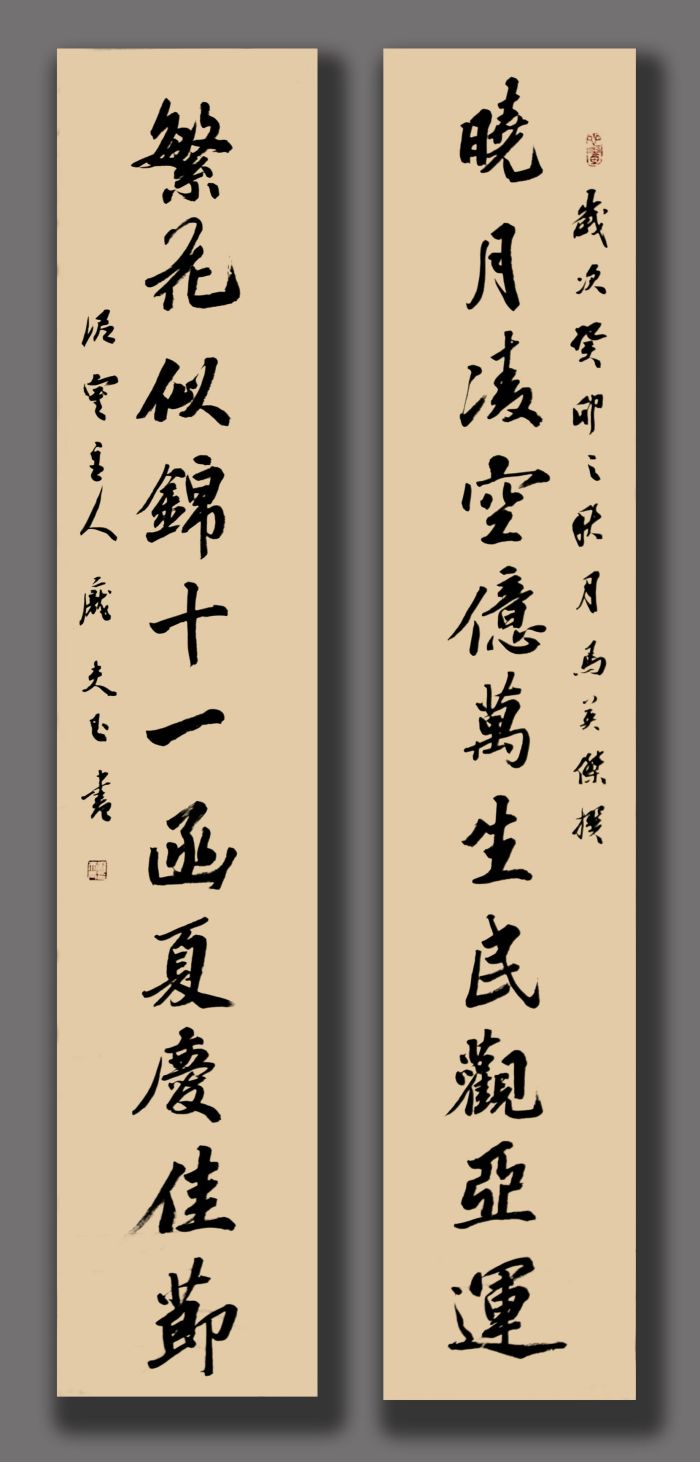 歲次癸卯之秋月馬英傑撰
曉月凌空億萬生民觀亞運
繁花似錦十一函夏慶佳節
主人 夫玉書